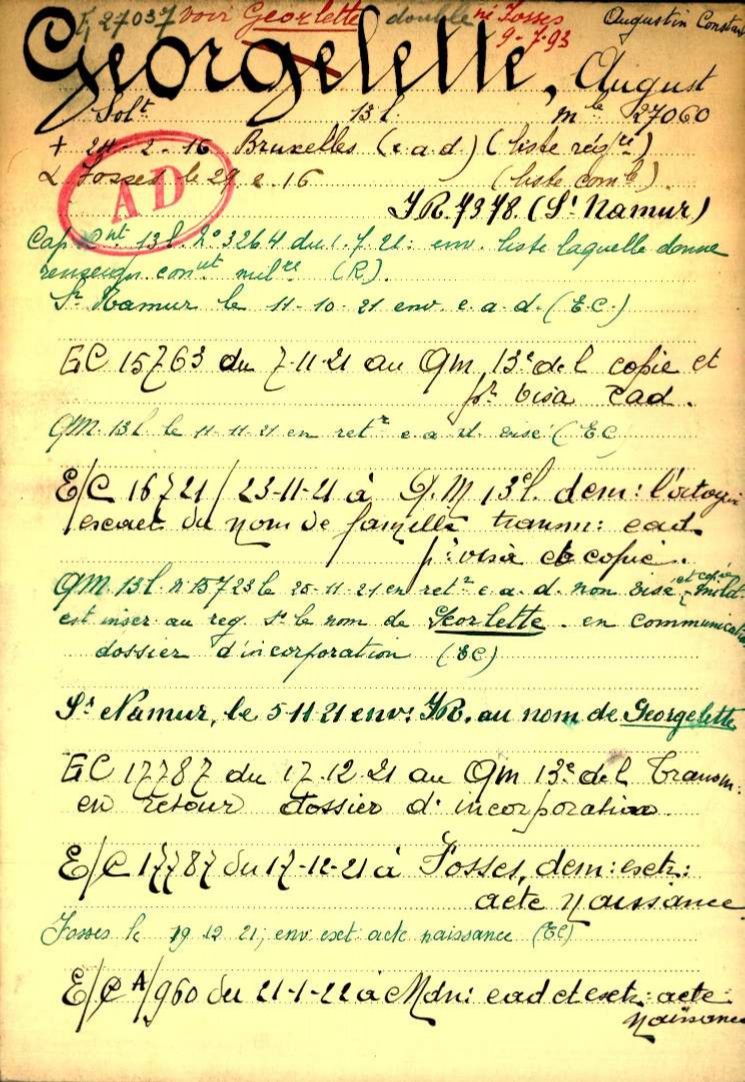 27037 voir Georlette double né Fosses Augustin Constant
9-7-93
Georgelette, August
Solt 13 l. mle 27060
+ 24-2-16 Bruxelles (e a d) (liste régre)
Fosses le 29 2. 16 (liste comle)
AD
J.R. 7378. (St Namur)
Cap 13 l. n° 3264 du 1. 7. 21: env. liste laquelle donne
renseign. conut milre (R).
St Namur le 11-10-21 env. e. a. d. (E.C.)
EC 15763 du 7-11-21 au Qm 13e de l copie et
pr visa Ead.
QM. 13 l. le 11-11-21 en retr e. a. d. visé (EC
E/C 16721/23-11-21 à Q.M 13e l. dem: l'octogr
exact du nom de famille transm: ead
pr visa et copie.
QM. 13 l. n° 15723 le 25-11-21 en retr e. a. d. non visé et copie, milit
est inscr au reg. st le nom de Georlette. en communication
dossier d'incorporation (EC)
St Namur, le 5-11-21 env: J.R. au nom de Georgelette
EC 17787 du 17.12.21 au Qm 13e de l Transm:
en retour dossier d'incorporation.
E/C 17787 du 17-12-21 à Fosses, dem: extr:
acte naissance
Fosses le 19 12 21, env ext acte naissance (EC)
E/C A/960 du 21-1-22 à Mdn: ead et extr: acte
naissance